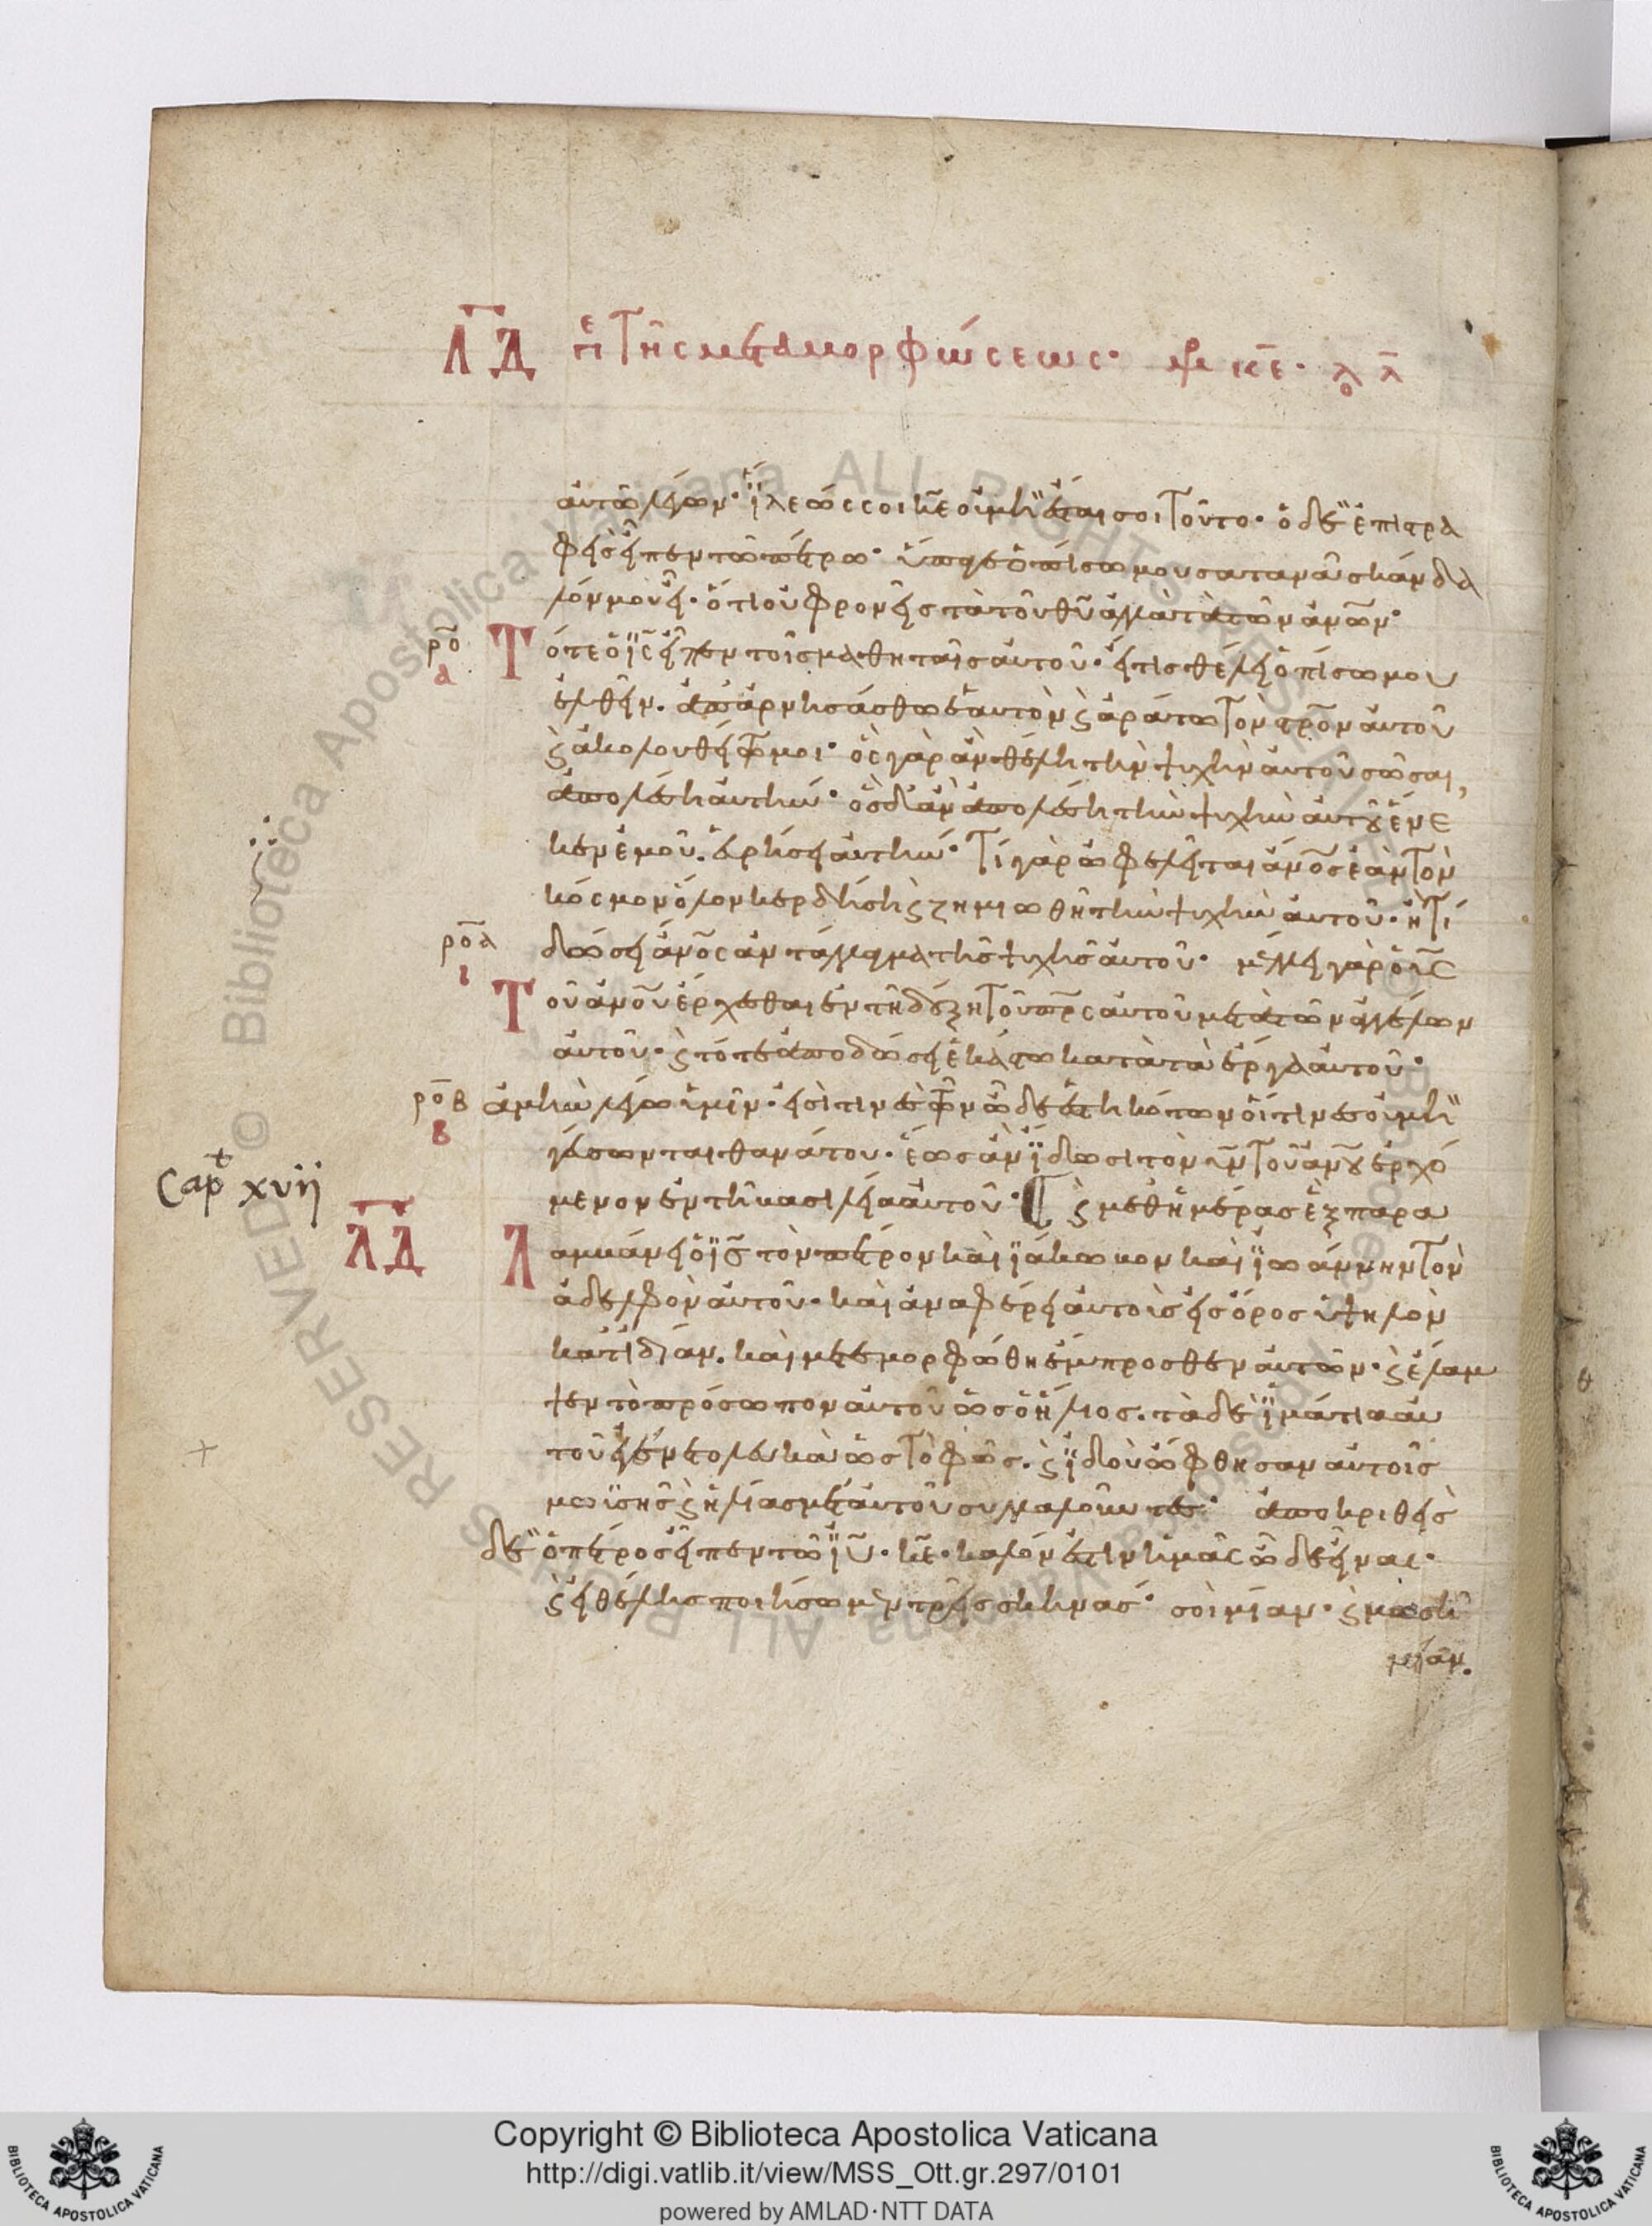 ΛΔ περὶ τῆς μεταμορφώσεως· μρ κε· λο λ
αὐτῶ λέγων· ἵλεώς σοι κε οὐ μὴ ἔσται σοι τοῦτο· ὁ δὲ ἐπιστρα
φεὶς εἶπεν τῶ πέτρω· ὕπαγε ὀπίσω μου σατανᾶ σκάνδα
λόν μου εἶ· ὅτι οὐ φρονεῖς τὰ τοῦ θυ ἀλλὰ τὰ τῶν ἀνων·
ρο α Τότε ὁ ις εἶπεν τοῖς μαθηταῖς αὐτοῦ· εἴ τις θέλει ὀπίσω μου
ἐλθεῖν. ἀπαρνησάσθω ἑαυτὸν ϗ ἀράτω τὸν στρον αὐτοῦ
ϗ ἀκολουθείτω μοι· ὃς γὰρ ἂν θέλη τὴν ψυχὴν αὐτοῦ σῶσαι,
ἀπολέσει αὐτήν· ὃς δ' ἂν ἀπολέση τὴν ψυχὴν αὐτοῦ ἕνε
κεν ἐμοῦ. εὑρήσει αὐτήν· Τί γὰρ ὠφελεῖται ἄνος ἐὰν τὸν
κόσμον ὅλον κερδήση ϗ ζημιωθῆ τὴν ψυχὴν αὐτοῦ· ἢ τί
ροα δώσει ἄνος ἀντάλλαγμα τῆς ψυχῆς αὐτοῦ· μέλλει γὰρ ὁ υς
ι Τοῦ ἀνου ἔρχεσθαι ἐν τῆ δόξη τοῦ πρς αὐτοῦ μετὰ τῶν ἀγγέλων
αὐτοῦ· ϗ τότε ἀποδώσει ἑκάστω κατὰ τὰ ἔργα αὐτοῦ·
ροβ β ἀμὴν λέγω ὑμῖν· εἰσί τινες τῶν ὧδε ἑστηκότων οἵτινες οὐ μὴ
γεύσωνται θανάτου· ἕως ἂν ἴδωσι τὸν υν τοῦ ἀνου ἐρχό
Cap xvii
μενον ἐν τῆ βασιλεία αὐτοῦ· ϗ μεθ' ἡμέρας ἓξ παρα
ΛΔ Λαμβάνει ὁ ις τὸν πέτρον καὶ ἰάκωβον καὶ ἰωάννην τὸν
ἀδελφὸν αὐτοῦ· καὶ ἀναφέρει αὐτοὺς εἰς ὄρος ὑψηλὸν
κατ' ἰδίαν. καὶ μετεμορφώθη ἔμπροσθεν αὐτῶν· ϗ ἔλαμ
ψεν τὸ πρόσωπον αὐτοῦ ὡς ὁ ἥλιος. τὰ δὲ ἱμάτια αὐ
τοῦ ἐγένετο λευκὰ ὡς τὸ φῶς. ϗ ἰδοὺ ὤφθησαν αὐτοῖς
μωϋσῆς ϗ ἠλίας μετ' αὐτοῦ συλλαλοῦντες· ἀποκριθεὶς
δὲ ὁ πέτρος εἶπεν τῶ ιυ· κε· καλόν ἐστιν ἡμᾶς ὧδε εἶναι·
ϗ εἰ θέλεις ποιήσωμεν τρεῖς σκηνάς· σοὶ μίαν· ϗ μωσῆ
μίαν.
Copyright © Biblioteca Apostolica Vaticana
http://digi.vatlib.it/view/MSS_Ott.gr.297/0101
powered by AMLAD·NTT DATA